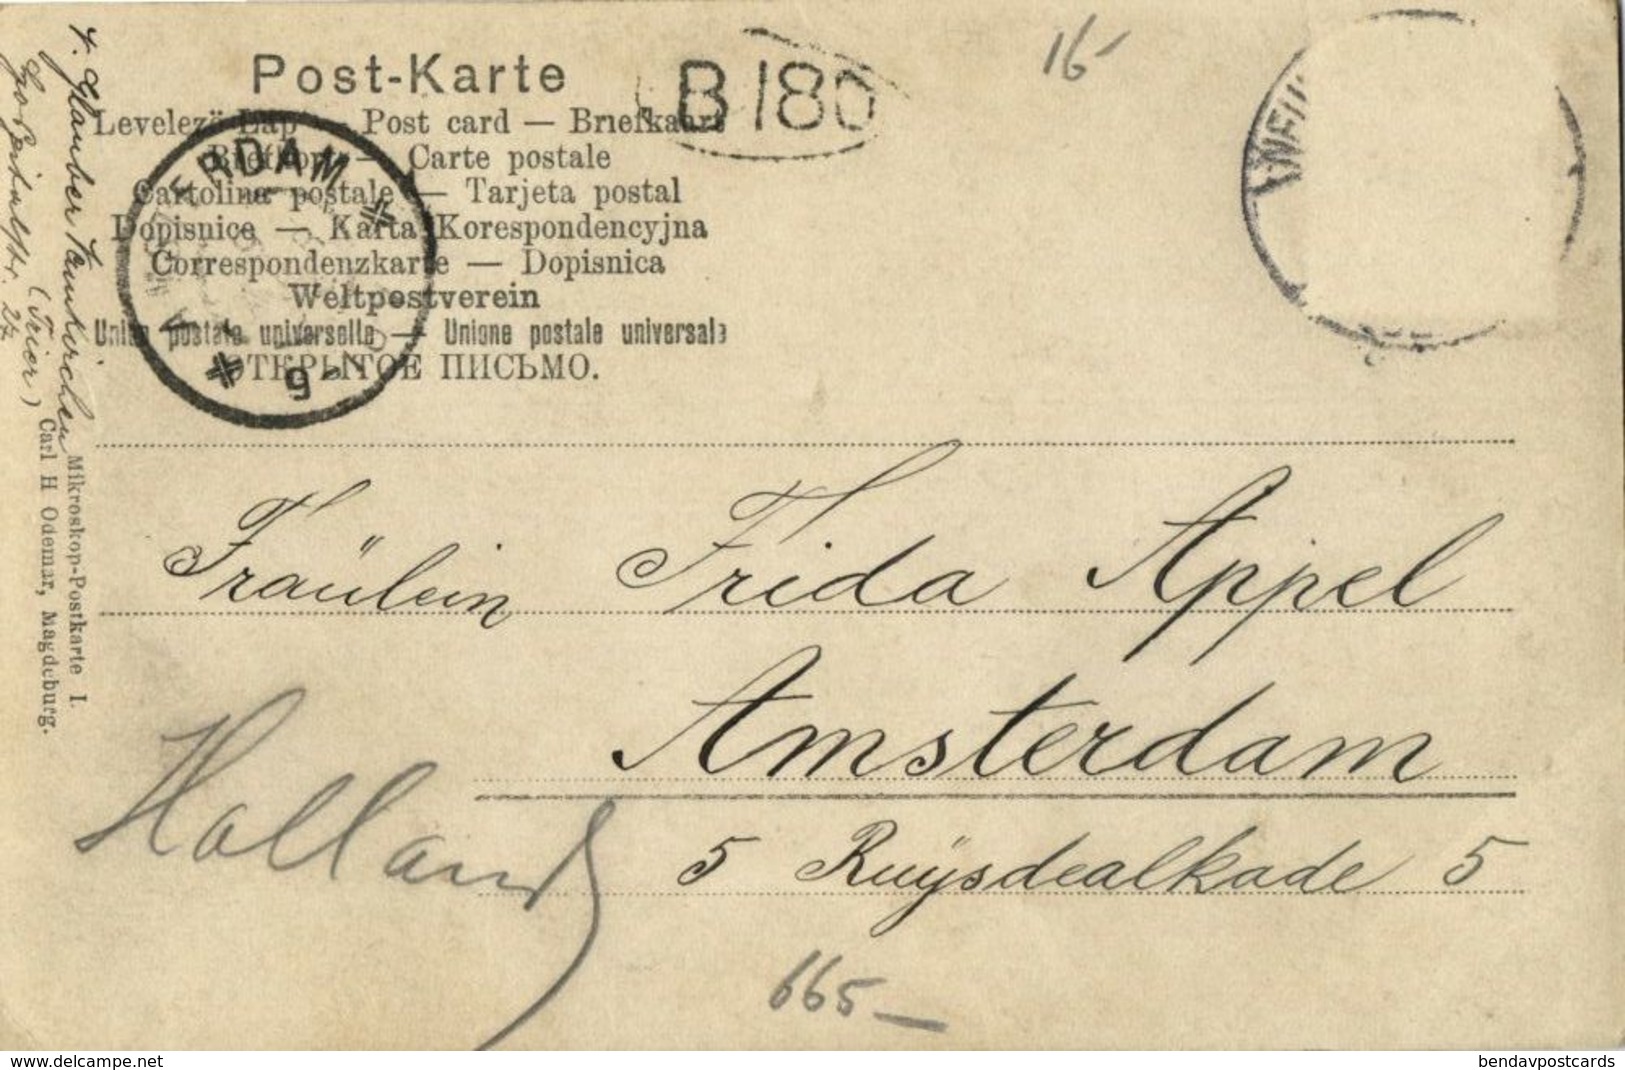 Post-Karte
Levelező-Lap — Post card — Briefkaart
Brefkort — Carte postale
Cartolina postale — Tarjeta postal
Dopisnice — Karta Korespondencyjna
Correspondenzkarte — Dopisnica
Weltpostverein
Union postale universelle — Unione postale universale
ОТКРЫТОЕ ПИСЬМО.
B 180
16-
Mikroskop-Postkarte I.
Carl H Odemar, Magdeburg.
Hospitalstr. 27
(Trier)
Fräulein Frida Appel
Amsterdam
Holland
5 Ruÿsdealkade 5
665 —
www.delcampe.net
bendavpostcards